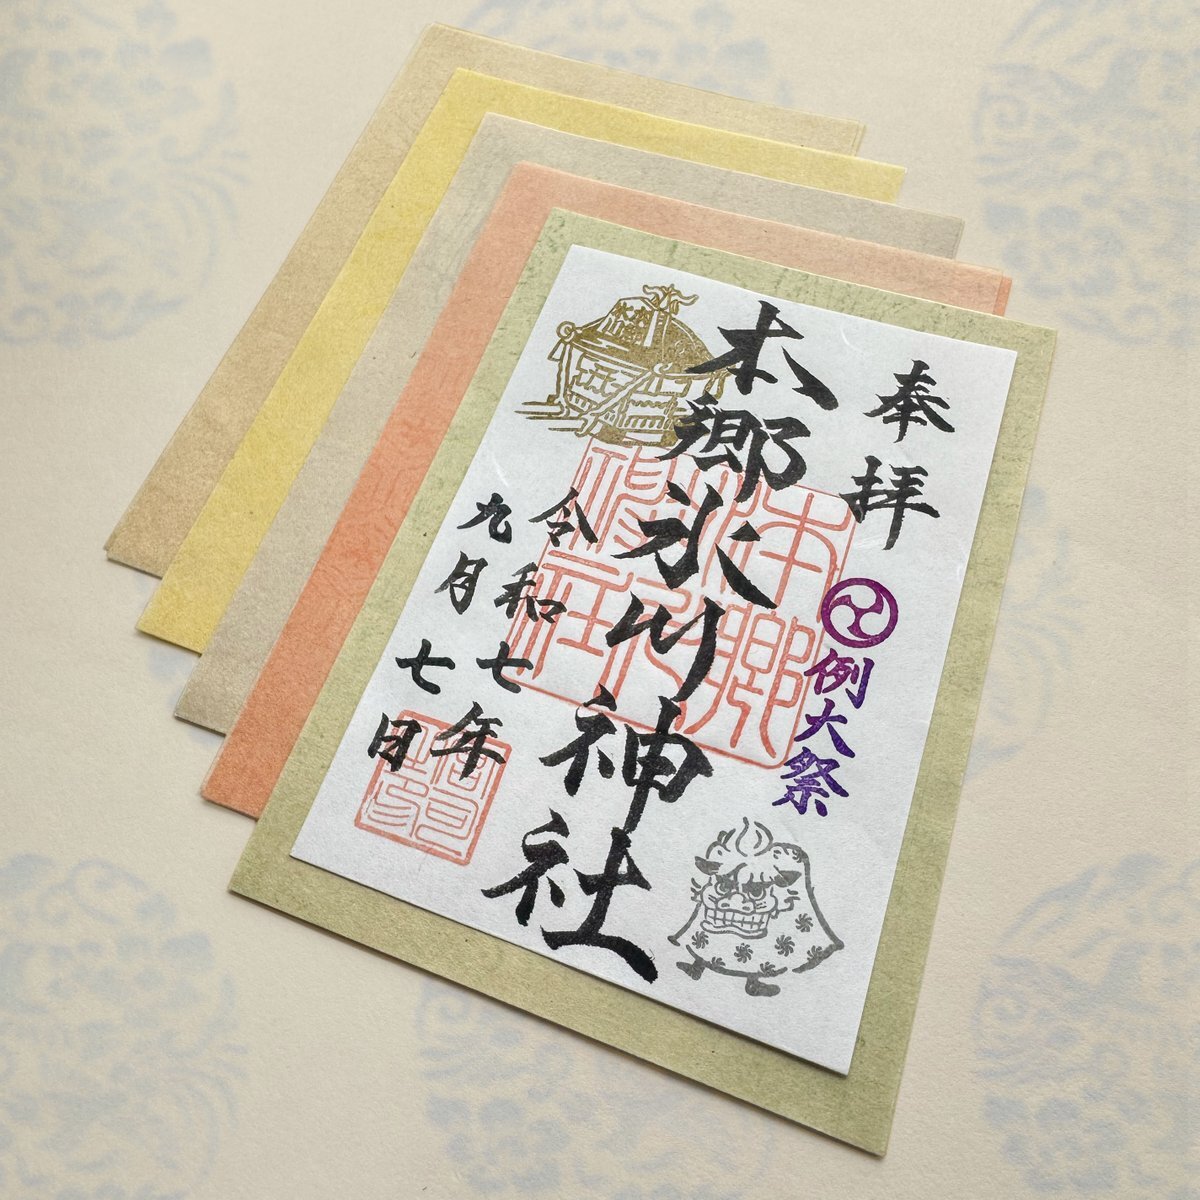 奉拝
例大祭
本郷氷川神社
令和七年
九月七日
本郷
氷川
神社